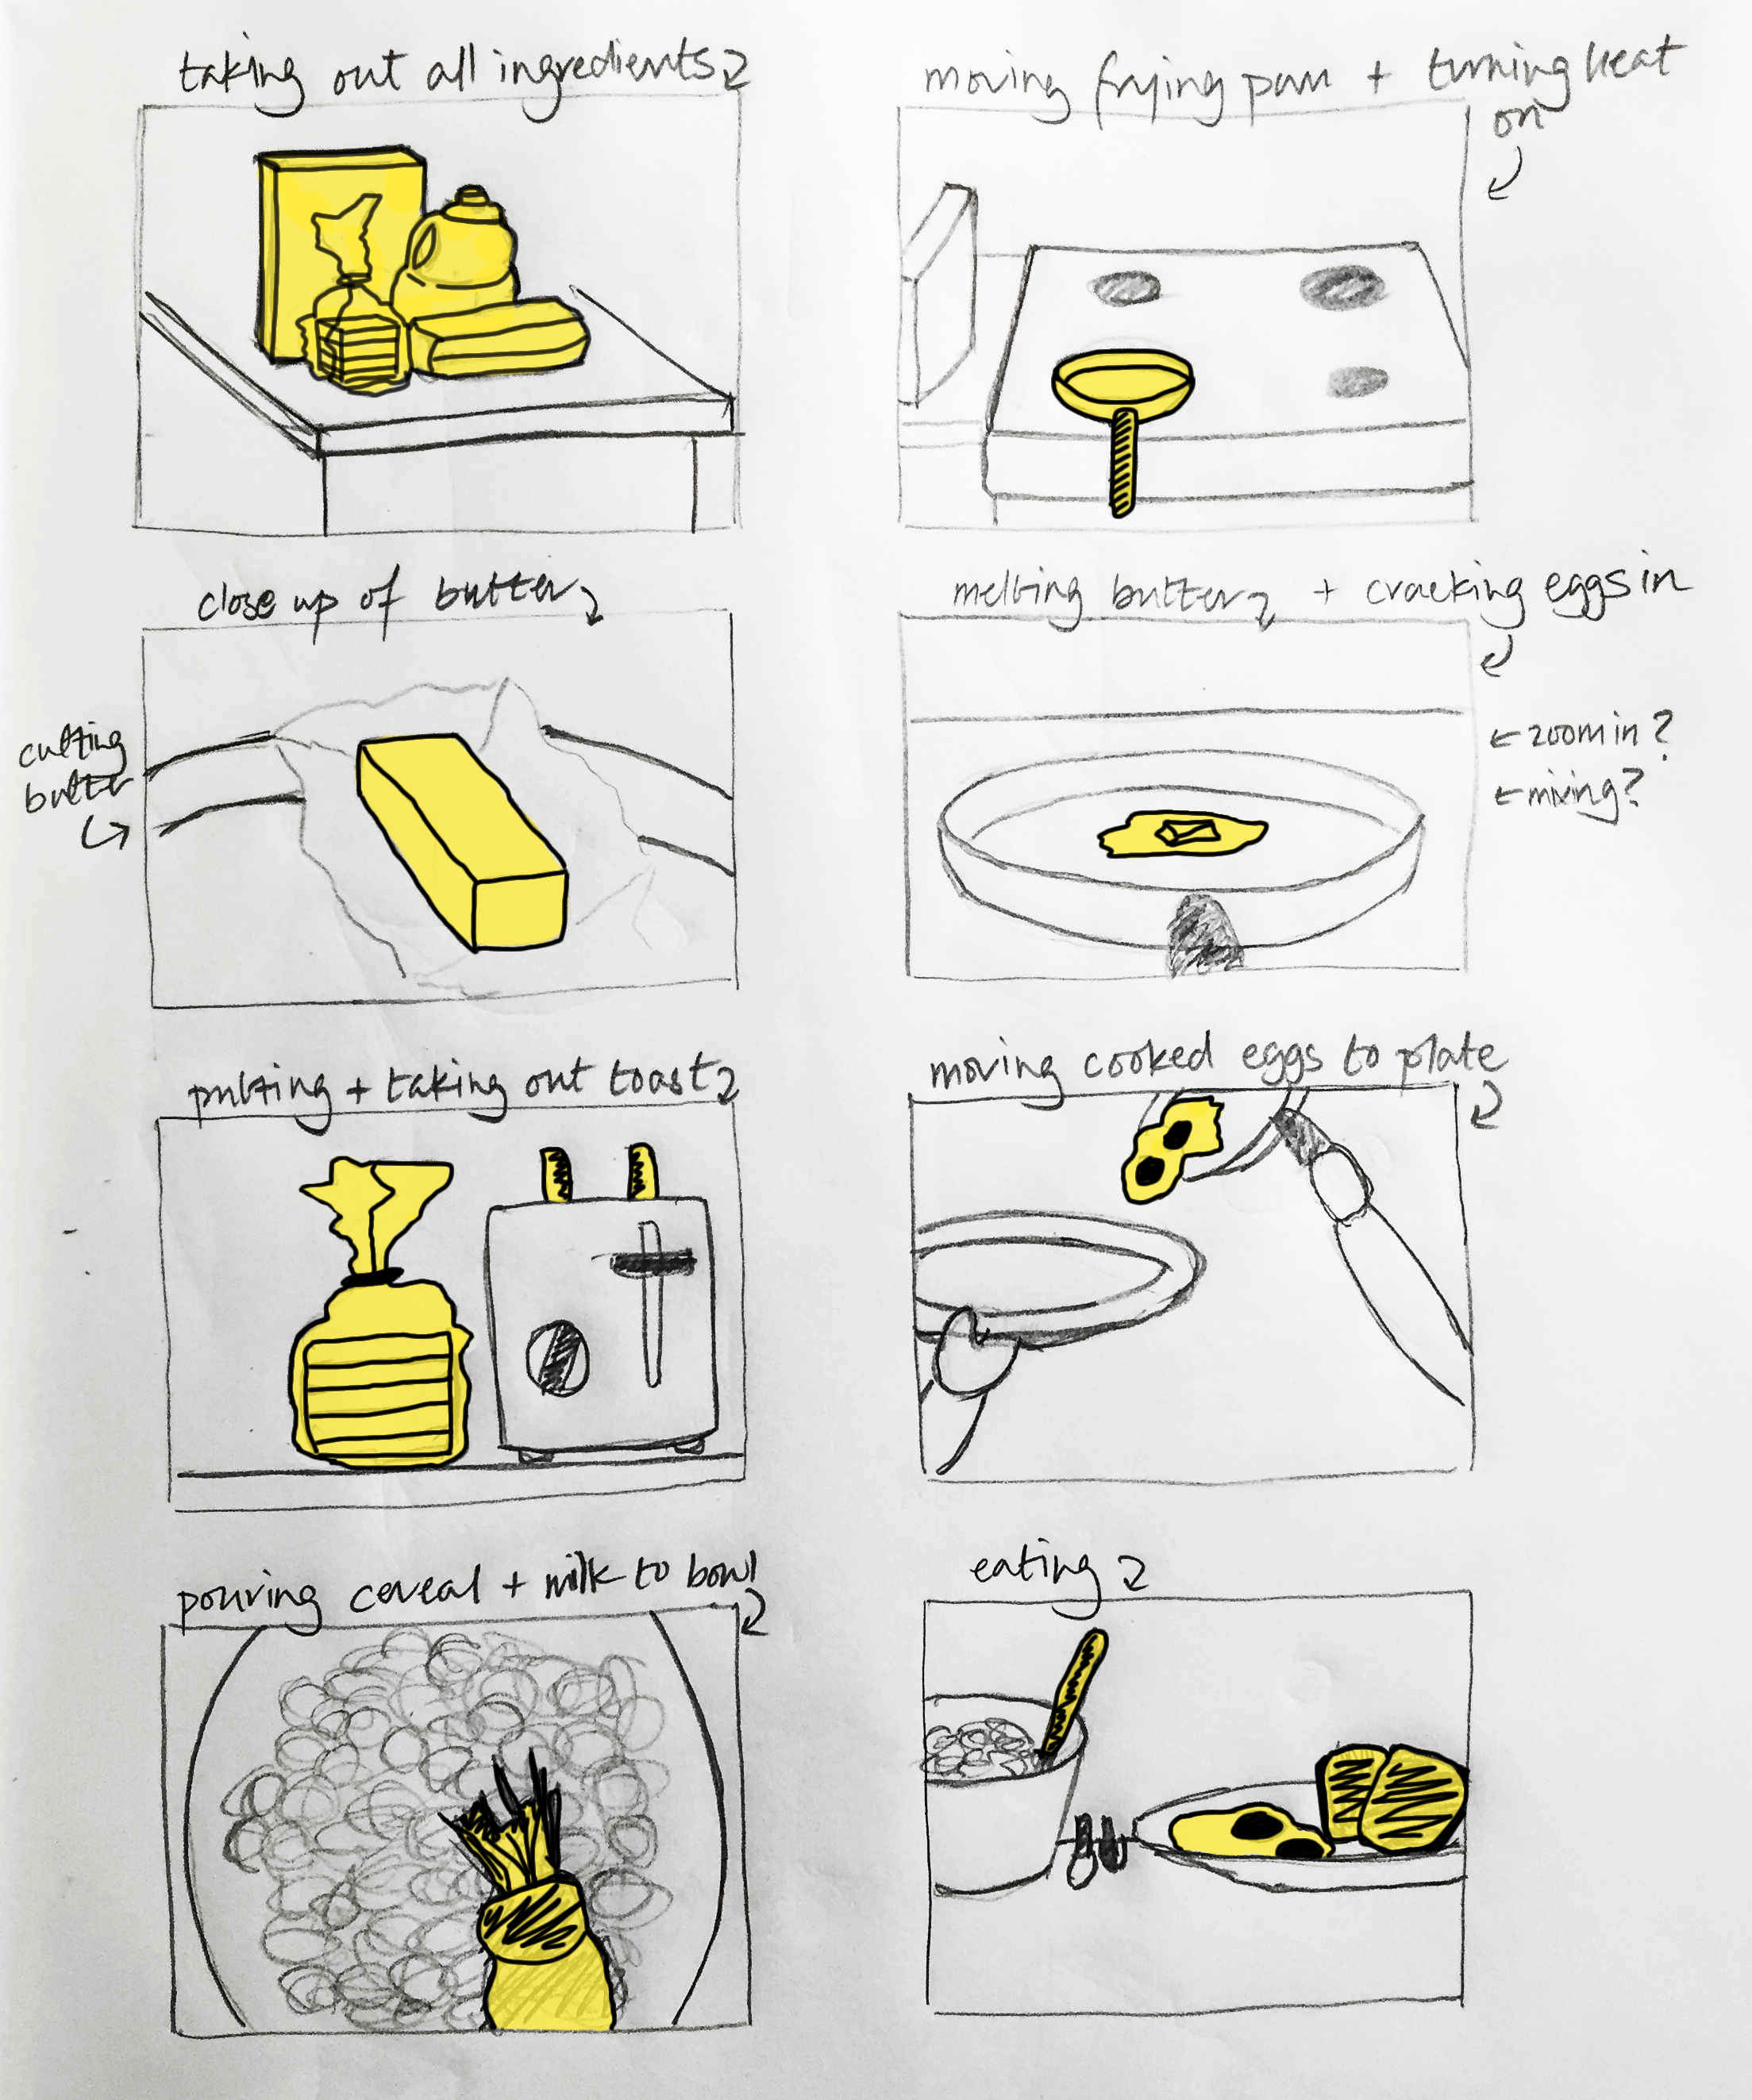 taking out all ingredients
moving frying pan + turning heat
on
close up of butter
melting butter + cracking eggs in
cutting
butter
zoom in?
mixing?
putting + taking out toast
moving cooked eggs to plate
pouring cereal + milk to bowl
eating